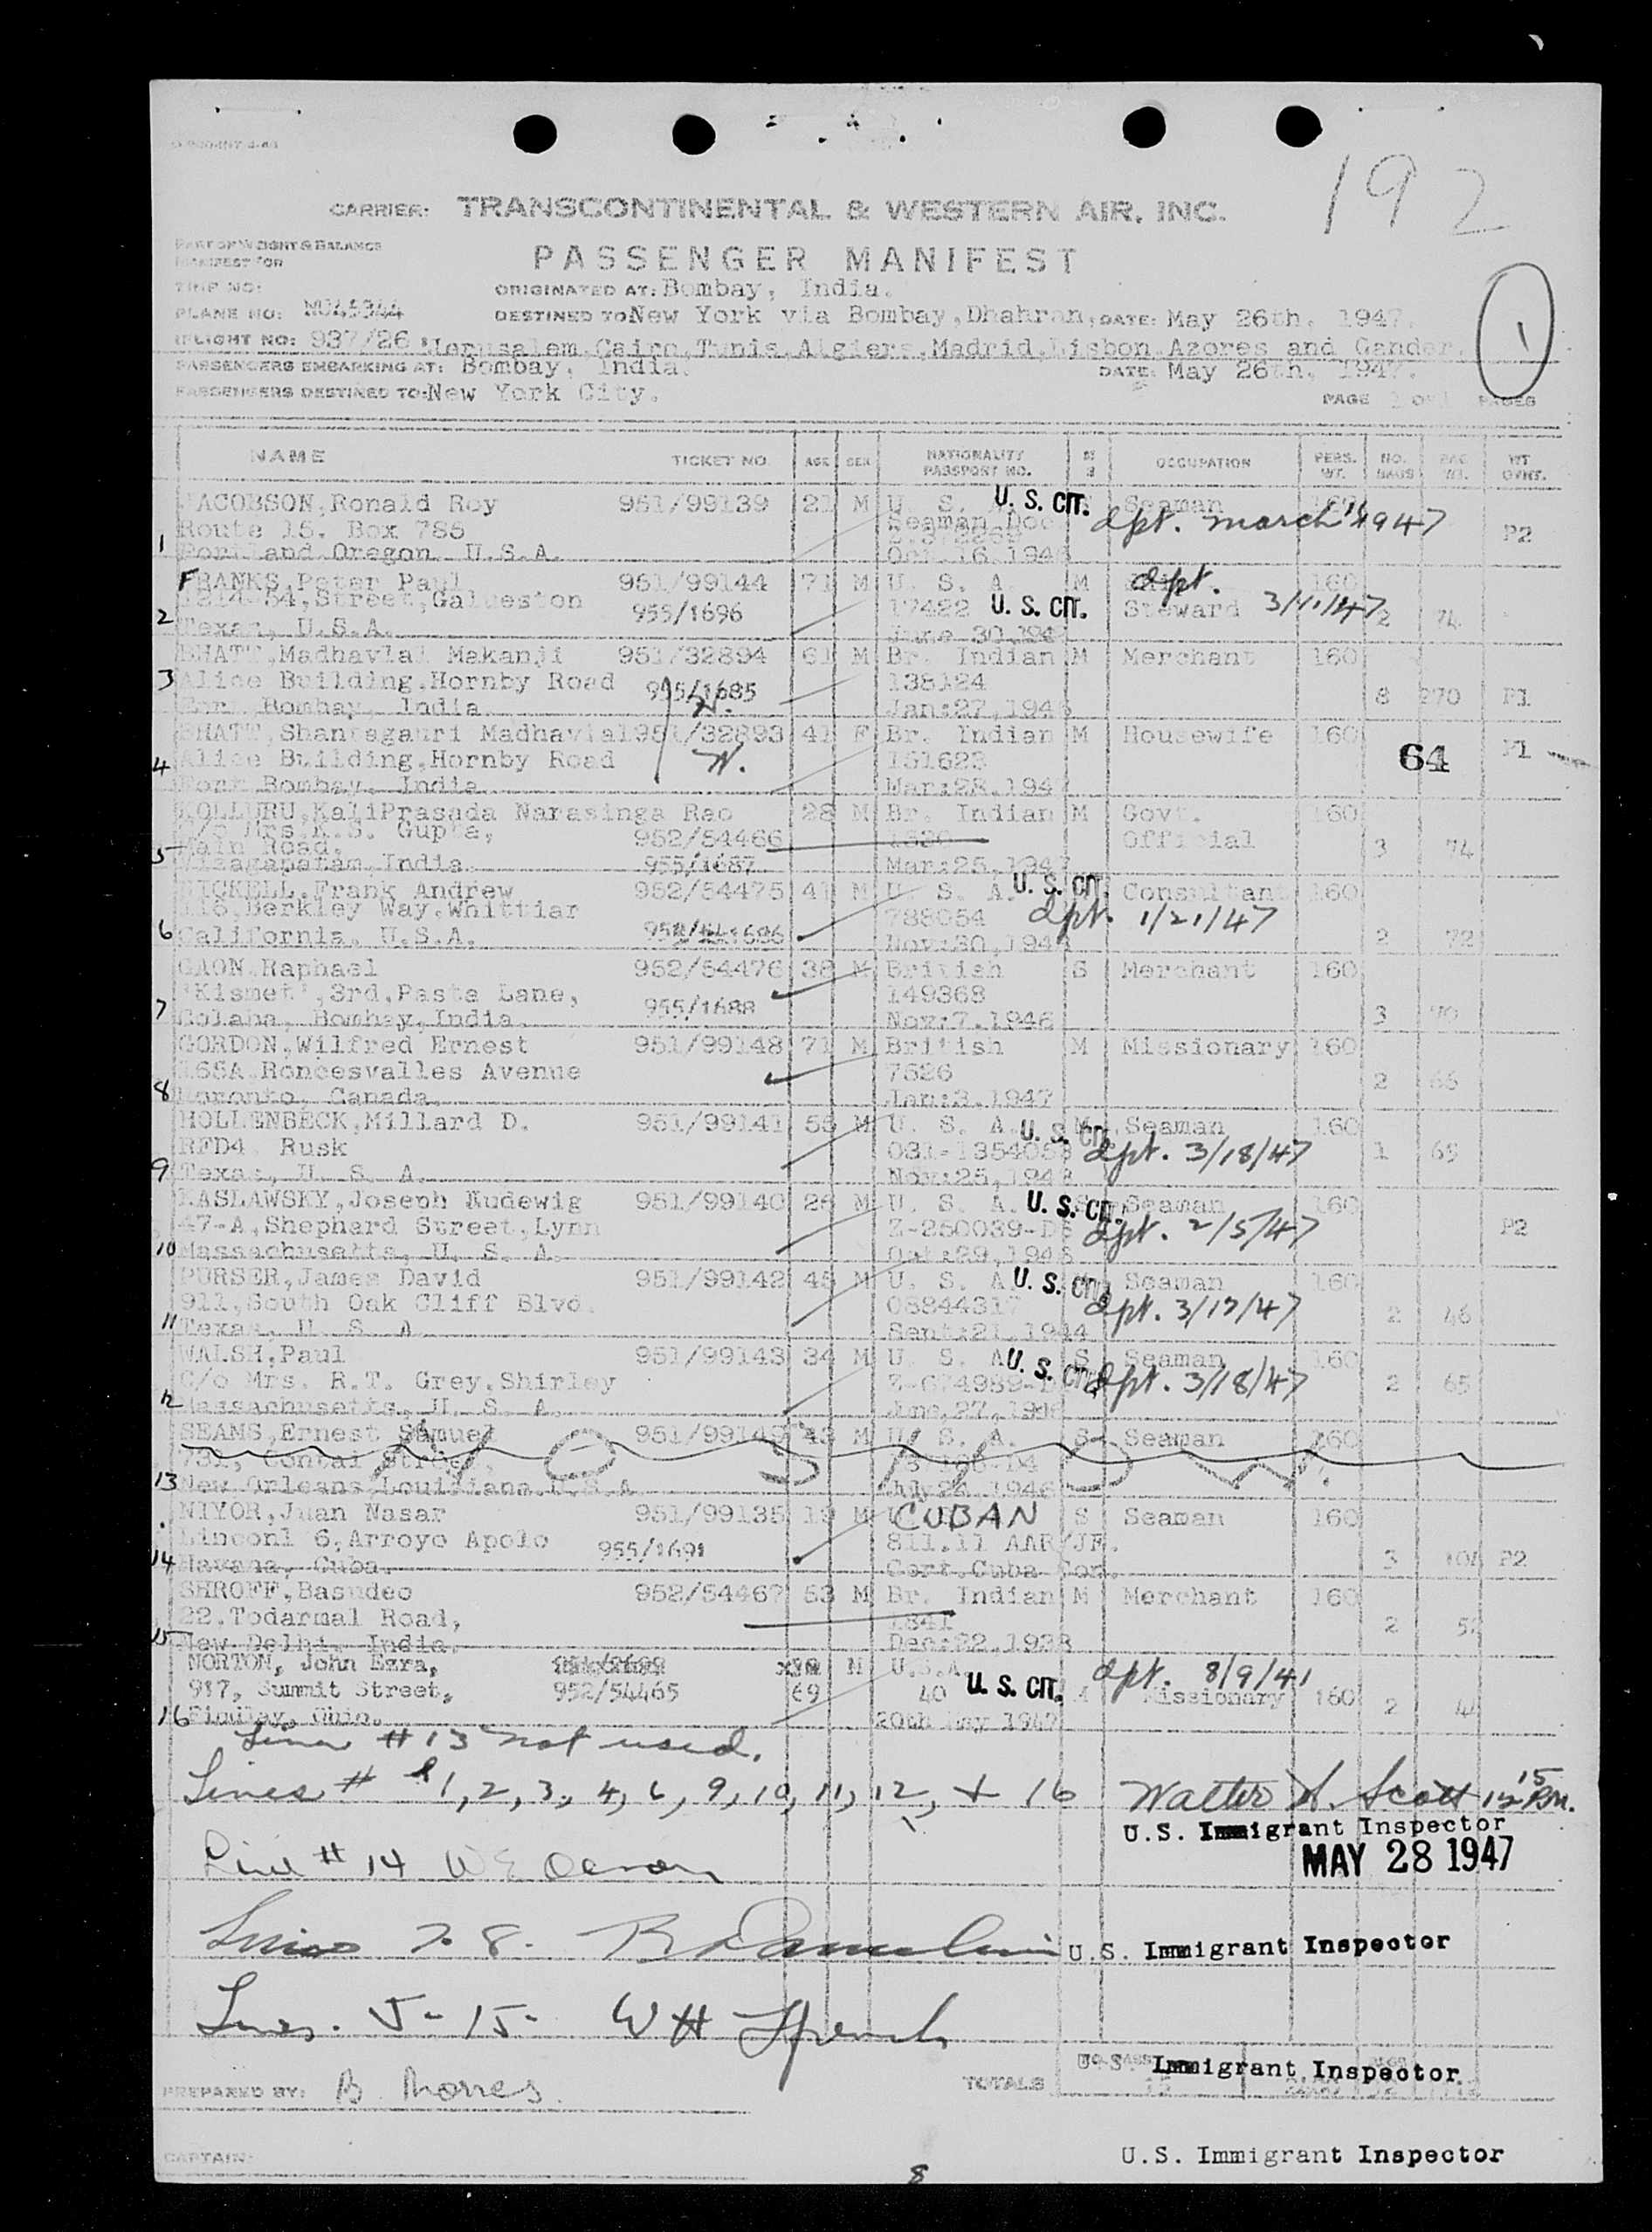 192
CARRIER: TRANSCONTINENTAL & WESTERN AIR, INC.
PART OF WEIGHT & BALANCE
MANIFEST FOR
PASSENGER MANIFEST
TRIP NO:
ORIGINATED AT: Bombay, India.
PLANE NO: NC45344
DESTINED TO New York via Bombay, Dhahran, DATE: May 26th, 1947.
FLIGHT NO: 937/26 Jerusalem, Cairo, Tunis, Algiers, Madrid, Lisbon, Azores and Gander. 1
PASSENGERS EMBARKING AT: Bombay, India. DATE: May 26th, 1947.
PASSENGERS DESTINED TO: New York City. PAGE 1 OF PAGES
NAME TICKET NO. AGE SEX NATIONALITY PASSPORT NO. OCCUPATION PERS. WT. NO. BAGS BAG WT. WT
JACOBSON, Ronald Roy 951/99139 21 M U. S. U. S. CIT. Seaman 160
Route 15. Box 785 Seaman Doc dpt. march 1947 P2
1 Portland Oregon, U.S.A. Oct.16.194
FRANKS, Peter Paul 951/99144 71 M U. S. A. M dpt. 160
54, Street, Galueston 955/1696 17422 U. S. CIT. Steward 3/11/47 2 74
2 Texas, U.S.A. June 30,194
BHATT, Madhavlal Makanji 951/32894 61 M Br. Indian M Merchant 160
3 Alice Building, Hornby Road 955/1685 138124 8 270 P1
Fort Bombay, India N. Jan:27,194
BHATT, Shantagauri Madhavlal 951/32893 41 F Br. Indian M Housewife 160
4 Alice Building, Hornby Road N. 151623 64 P1
Fort Bombay, India Mar:28.194
KOLLURU, KaliPrasada Narasinga Rao 28 M Br. Indian M Govt. 160
C/o Mrs.K.S. Gupta, 952/54466 Official
5 Main Road, 3 74
Vizagapatam, India. 955/1687 Mar:25,1947
BICKELL, Frank Andrew 952/54475 41 M U. S. A. U. S. CIT. Consultant 160
Berkley Way, Whittiar 788054 dpt. 1/21/47
6 California, U.S.A. Nov:30,194 2 72
GAON, Raphael 952/54476 38 M British S Merchant 160
'Kismet', 3rd, Pasta Lane, 955/1688 149368
7 Colaba, Bombay, India. Nov:7.1946 3 70
GORDON, Wilfred Ernest 951/99148 71 M British M Missionary 160
165A Roncesvalles Avenue 7526 2 66
8 Toronto, Canada. Jan:3.1947
HOLLENBECK, Millard D. 951/99141 55 M U. S. A. U. S. CIT. Seaman 160
RFD4 Rusk 031-135405 dpt. 3/18/47 1 65
9 Texas, U. S. A. Nov:25,194
LASLAWSKY, Joseph Ludewig 951/99140 26 M U. S. A. U. S. CIT. Seaman 160
47-A, Shephard Street, Lynn Z-250039-D dpt. 2/5/47 P2
10 Massachusetts, U. S. A. Oct:29,194
PURSER, James David 951/99142 45 M U. S. A U. S. CIT. Seaman 160
911, South Oak Cliff Blvd. 08844317 dpt. 3/17/47 2 46
11 Texas, U. S. A. Sept:21,1944
WALSH, Paul 951/99143 34 M U. S. A U. S. CIT. S Seaman 160
C/o Mrs. R.T. Grey, Shirley Z-674989- dpt. 3/18/47 2 65
12 Massachusetts, U. S. A. June,27,194
SEAMS, Ernest Samuel 951/99149 43 M U. S. A. S Seaman 160
731, Street,
13 New Orleans, Louisiana, U.S.A July 24,1946
NIYOR, Juan Nasar 951/99135 19 M CUBAN S Seaman 160
Linconl 6, Arroyo Apolo 955/1691 811.11 AAR/JF.
14 Havana, Cuba. Cert.Cuba Con. 3 P2
SHROFF, Basudeo 952/54467 53 M Br. Indian M Merchant 160
22.Todarmal Road, 1841 2
15 New Delhi, India. Dec:22.1938
NORTON, John Ezra, M U.S.A. dpt. 8/9/41
917, Summit Street, 952/54465 69 40 U. S. CIT. Missionary 160 2
16 Findlay, Ohio. 20th May 1947
Line #13 not used.
Lines # 1, 2, 3, 4, 6, 9, 10, 11, 12, + 16 Walter A. Scott 12 15 P.M.
U.S. Immigrant Inspector
MAY 28 1947
Line # 14 W E
Lines 7. 8. U.S. Immigrant Inspector
Lines. 5-15- W H French
U.S. Immigrant Inspector
PREPARED BY: B. TOTALS
CAPTAIN: U.S. Immigrant Inspector
8